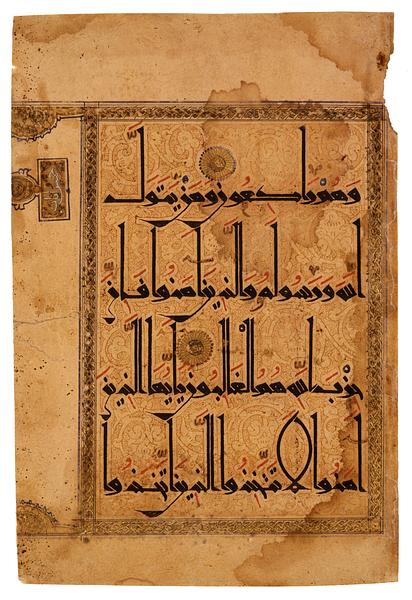 وَهُمْ رَاكِعُونَ وَمَنْ يَتَوَلَّ
اللَّهَ وَرَسُولَهُ وَالَّذِينَ آمَنُوا فَإِنَّ
حِزْبَ اللَّهِ هُمُ الْغَالِبُونَ يَا أَيُّهَا الَّذِينَ
آمَنُوا لَا تَتَّخِذُوا الَّذِينَ اتَّخَذُوا